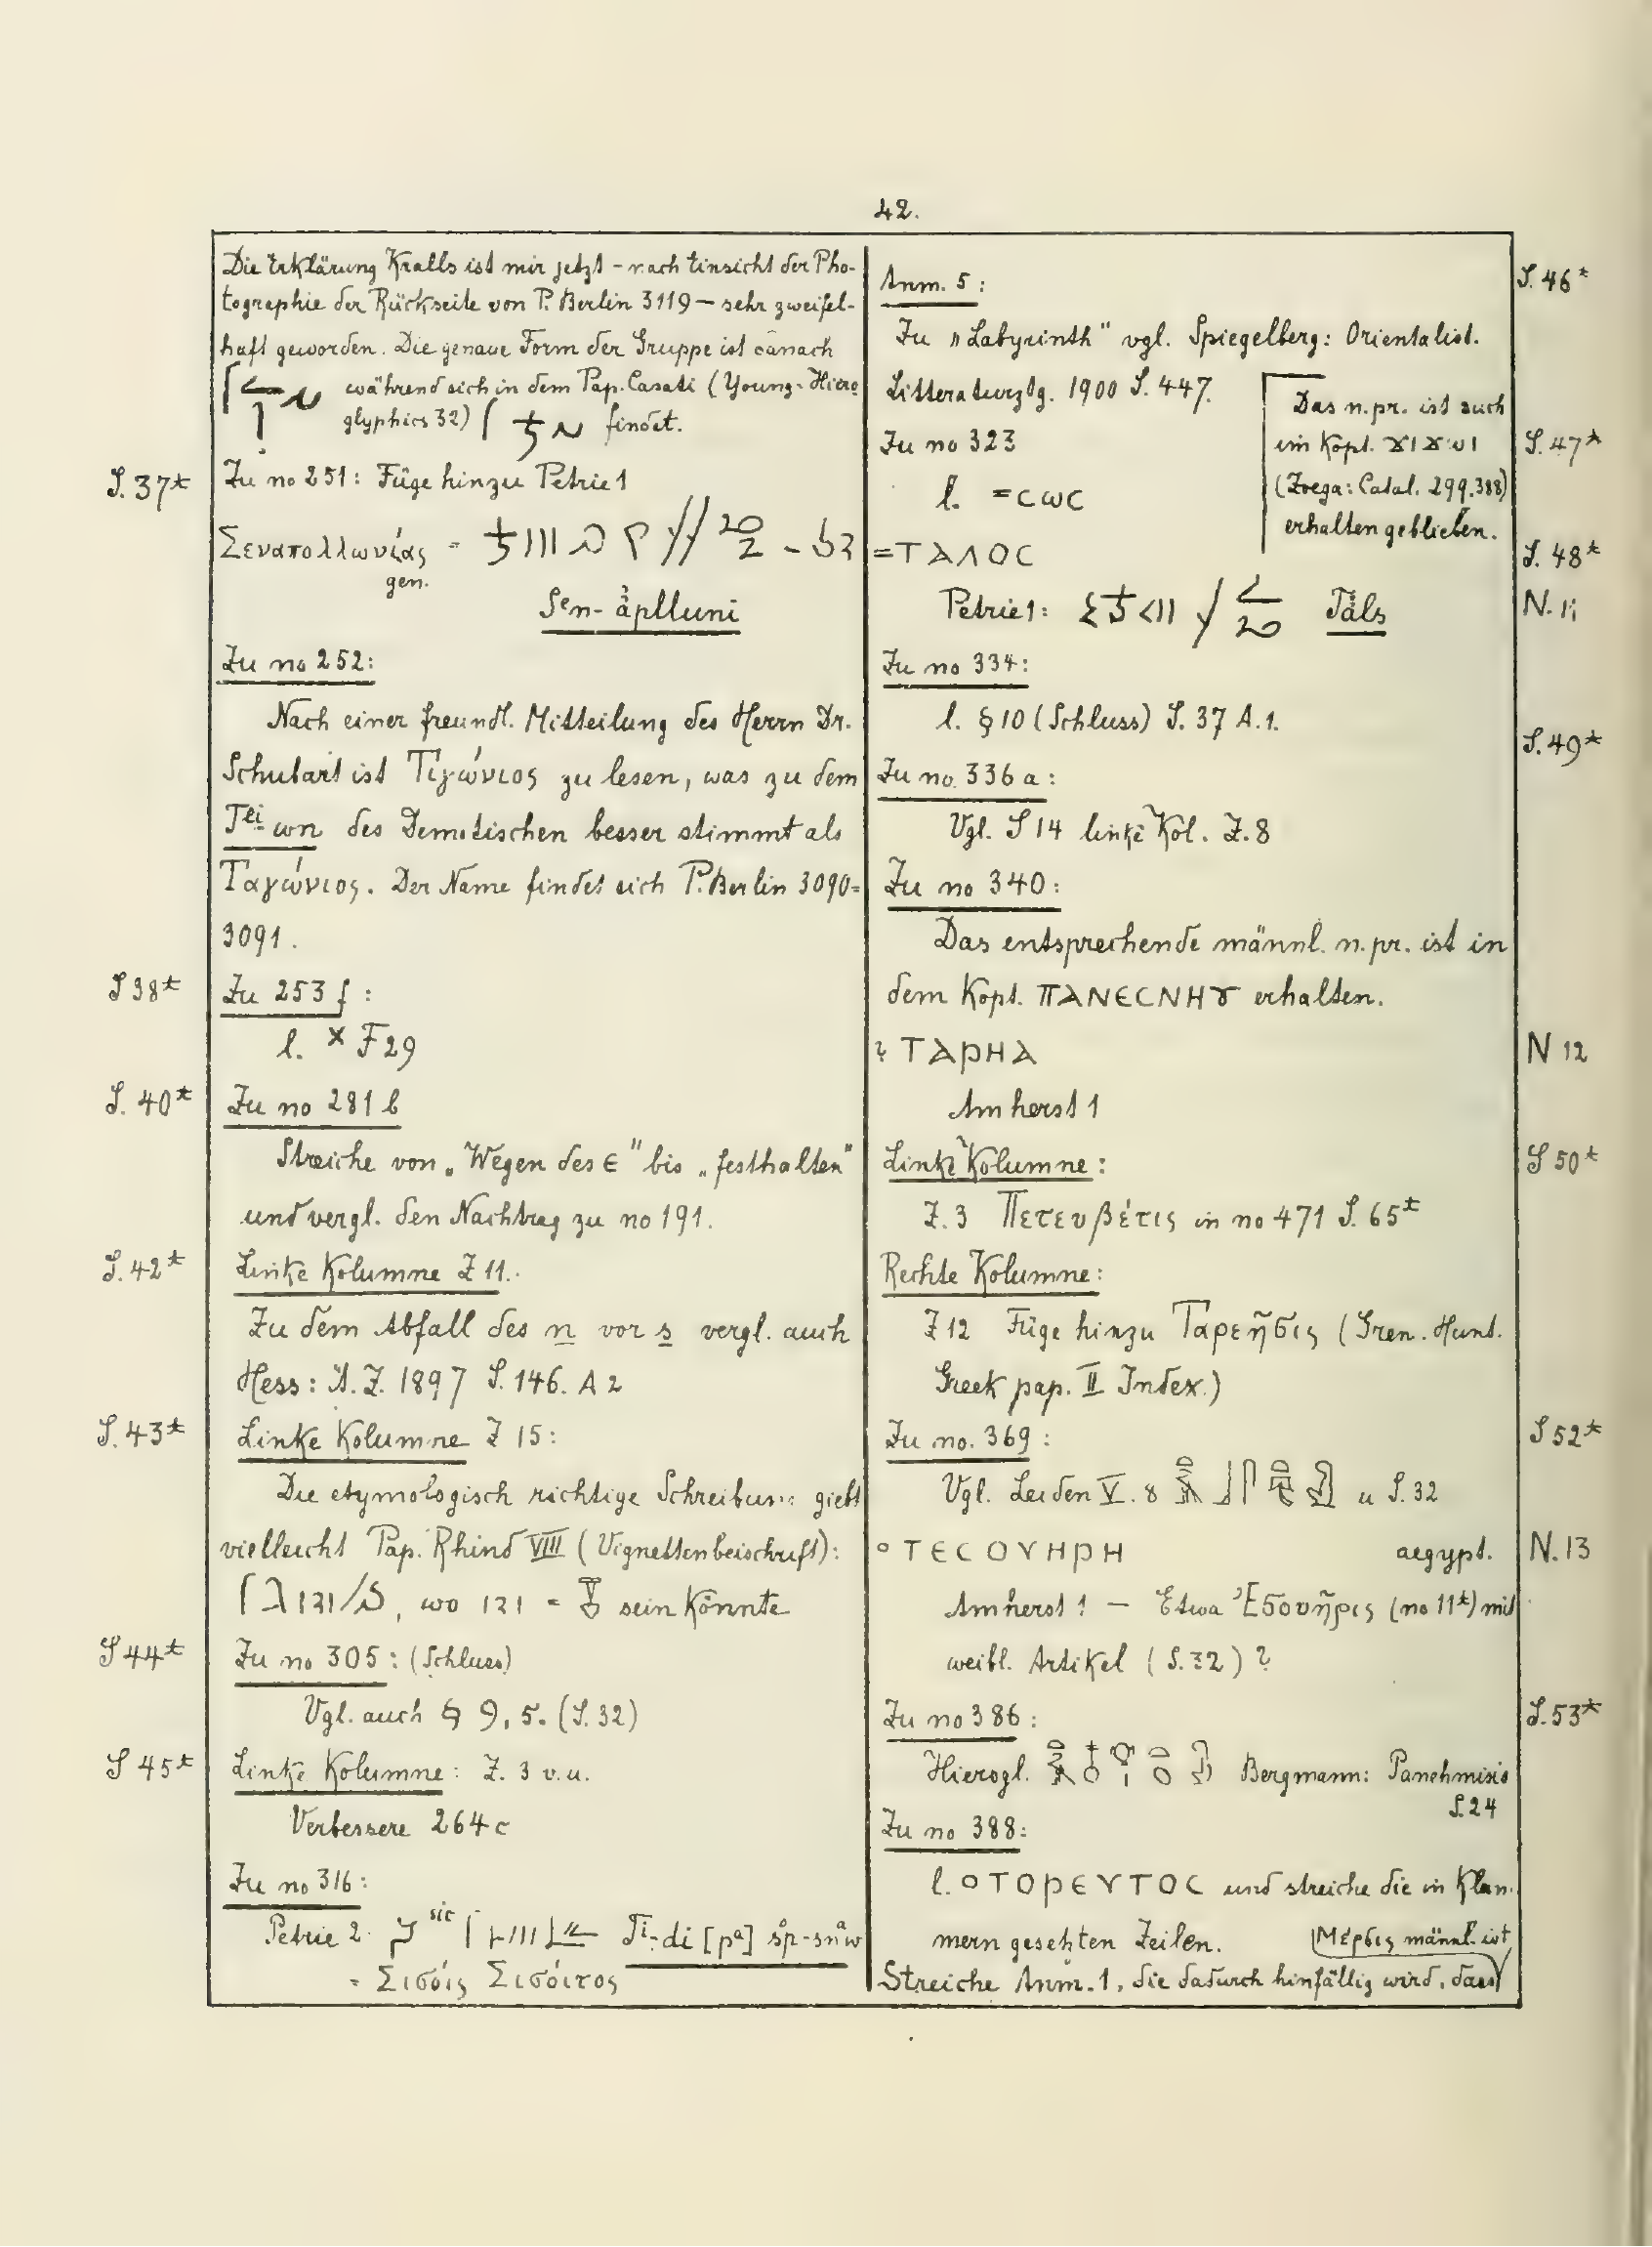 42.
Die Erklärung Kralls ist mir jetzt – nach Einsicht der Pho-
tographie der Rückseite von P. Berlin 3119 – sehr zweifel-
haft geworden. Die genaue Form der Gruppe ist danach
während sich in dem Pap. Casati (Young: Hiero
glyphics 32) findet.
S. 37* Zu no 251: Füge hinzu Petrie 1
Σεναπολλωνίας =
gen.
Sen-
Zu no 252:
Nach einer freundl. Mitteilung des Herrn Dr.
Schubart ist Τιγώνιος zu lesen, was zu dem
des Demotischen besser stimmt als
Ταγώνιος. Der Name findet sich P. Berlin 3090=
3091.
S 38* Zu 253 f:
l. × F 29
S. 40* Zu no 281 b
Streiche von „Wegen des ϵ" bis „festhalten"
und vergl. den Nachtrag zu no 191.
S. 42* Linke Kolumne Z 11.
Zu dem Abfall des n vor s vergl. auch
Hess: Ä. Z. 1897 S. 146. A 2
S. 43* Linke Kolumne Z 15:
Die etymologisch richtige Schreibung giebt
vielleicht Pap. Rhind VIII (Vignettenbeischrift):
wo = sein könnte
S 44* Zu no 305: (Schluss)
Vgl. auch § 9, 5. (S. 32)
S 45* Linke Kolumne: Z. 3 v. u.
Verbessere 264 c
Zu no 316:
Petrie 2. sic
= Σισόις Σισόιτος
Anm. 5: S. 46*
Zu „Labyrinth" vgl. Spiegelberg: Orientalist.
Litteraturztg. 1900 S. 447.
Das n. pr. ist auch
im Kopt. ϪΙϪⲰΙ S. 47*
(Zoega: Catal. 299. 388)
erhalten geblieben.
Zu no 323
l. = ⲥⲱⲥ
= ⲦⲀⲖⲞⲤ S. 48*
Petrie 1: N. 11
Zu no 334:
l. § 10 (Schluss) S. 37 A. 1.
Zu no. 336 a: S. 49*
Vgl. S 14 linke Kol. Z. 8
Zu no 340:
Das entsprechende männl. n. pr. ist in
dem Kopt. ⲠⲀⲚⲈⲤⲚⲎⲨ erhalten.
? ⲦⲀⲢⲎⲀ N 12
Amherst 1
Linke Kolumne: S 50*
Z. 3 Πετευβέτις in no 471 S. 65*
Rechte Kolumne:
Z 12 Füge hinzu Ταρεῆσις (Gren. Hunt.
Greek pap. II Index.)
Zu no. 369: S 52*
Vgl. Leiden V. 8 u S. 32
° ⲦⲈⲤⲞⲨⲎⲢⲎ aegypt. N. 13
Amherst 1 – Etwa Ἐσουῆρις (no 11*) mit
weibl. Artikel (S. 32)?
Zu no 386: S. 53*
Hierogl. Bergmann: Panehmisis
S. 24
Zu no 388:
l. ° ⲦⲞⲢⲈⲨⲦⲞⲤ und streiche die in Klam-
mern gesetzten Zeilen.
Streiche Anm. 1, die dadurch hinfällig wird, dass
Μέρσις männl. ist